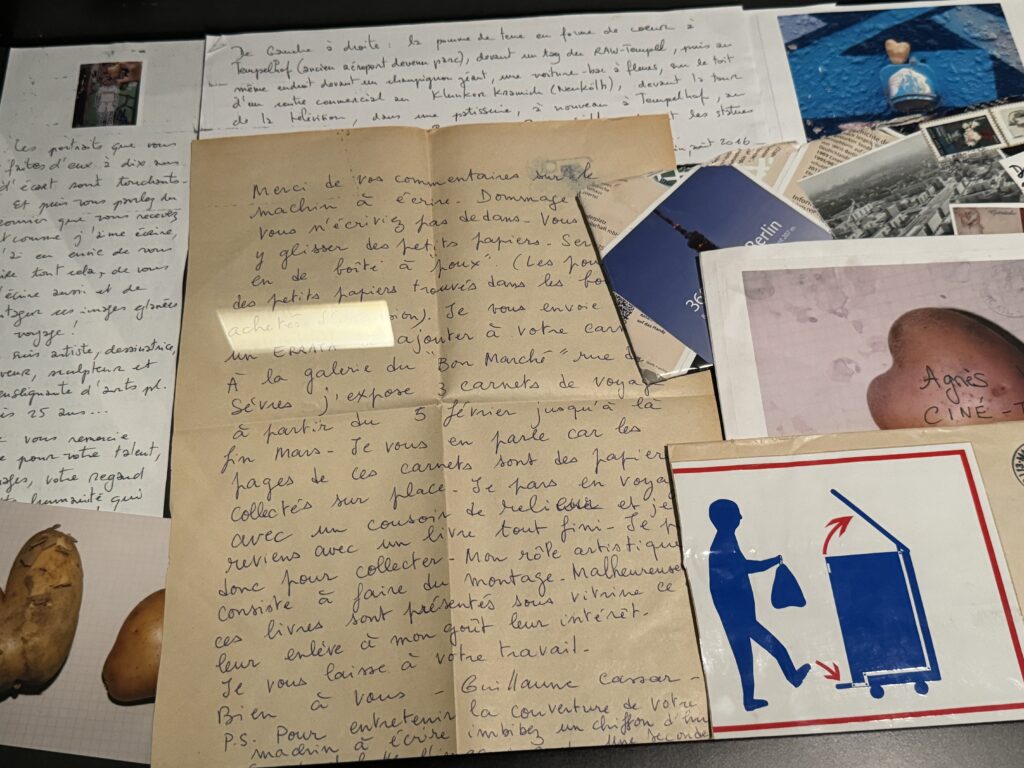 De Gauche à droite : la pomme de terre en forme de coeur à
Tempelhof (ancien aéroport devenu parc), devant un tag du RAW-Tempel, puis au
même endroit devant un champignon géant, une voiture-bac à fleurs, sur le toit
d'un centre commercial au Klunker Kranich (Neukölln), devant la tour
de la télévision, dans une patisserie, à nouveau à Tempelhof, au
les statues
août 2016
Les portraits que vous
faites d'eux à dix ans
d'écart sont touchants.
Et puis vous parlez du
courrier que vous recevez
et comme j'aime écrire,
j'ai eu envie de vous
tout cela, de vous
écrire aussi et de
partager ces images glanées
voyage !
suis artiste, dessinatrice,
sculpteur et
enseignante d'arts pl.
25 ans...
vous remercie
pour votre talent,
votre regard
humanité qui
Merci de vos commentaires sur le
machin à écrire. Dommage
vous n'écriviez pas dedans. Vous
y glisser des petits papiers. Ser
en de boîte à "poux" (Les pou
des petits papiers trouvés dans les bo
achetés d'occasion). Je vous envoie
un ERRATA ajouter à votre car
À la galerie du "Bon Marché" rue de
Sèvres j'expose 3 carnets de voyag
à partir du 5 février jusqu'à la
fin Mars. Je vous en parle car les
pages de ces carnets sont des papier
collectés sur place. Je pars en voyag
avec un cousoir de reliure et je
reviens avec un livre tout fini. Je p
donc pour collecter. Mon rôle artistique
consiste à faire du montage. Malheureuse
ces livres sont présentés sous vitrine ce
leur enlève à mon goût leur intérêt.
Je vous laisse à votre travail.
Bien à vous -
Guillaume Cassar -
P.S. Pour entretenir la couverture de votre
machin à écrire imbibez un chiffon d'
une seconde
Berlin
36
Agnès
CINÉ-T